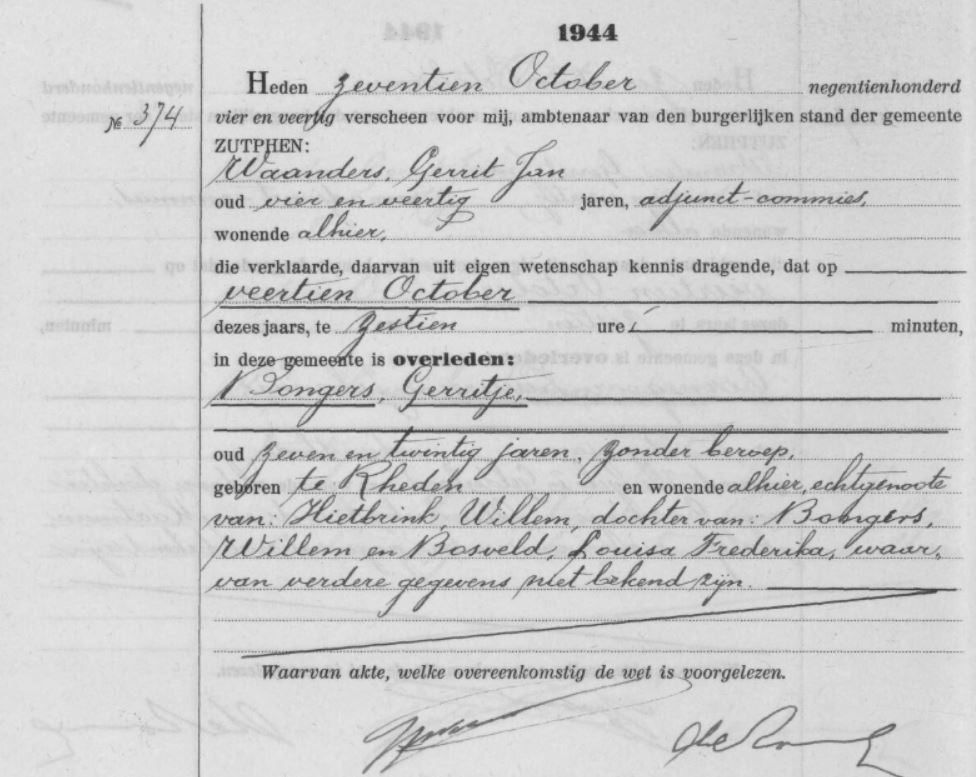 1944
Heden zeventien October negentienhonderd
№ 374 vier en veertig verscheen voor mij, ambtenaar van den burgerlijken stand der gemeente
ZUTPHEN:
Waanders, Gerrit Jan
oud vier en veertig jaren, adjunct-commies,
wonende alhier,
die verklaarde, daarvan uit eigen wetenschap kennis dragende, dat op
veertien October
dezes jaars, te zestien ure minuten,
in deze gemeente is overleden:
Bongers, Gerritje,
oud zeven en twintig jaren, zonder beroep,
geboren te Rheden en wonende alhier, echtgenoote
van: Hietbrink, Willem, dochter van: Bongers,
Willem en Bosveld, Louisa Frederika, waar-
van verdere gegevens niet bekend zijn.
Waarvan akte, welke overeenkomstig de wet is voorgelezen.